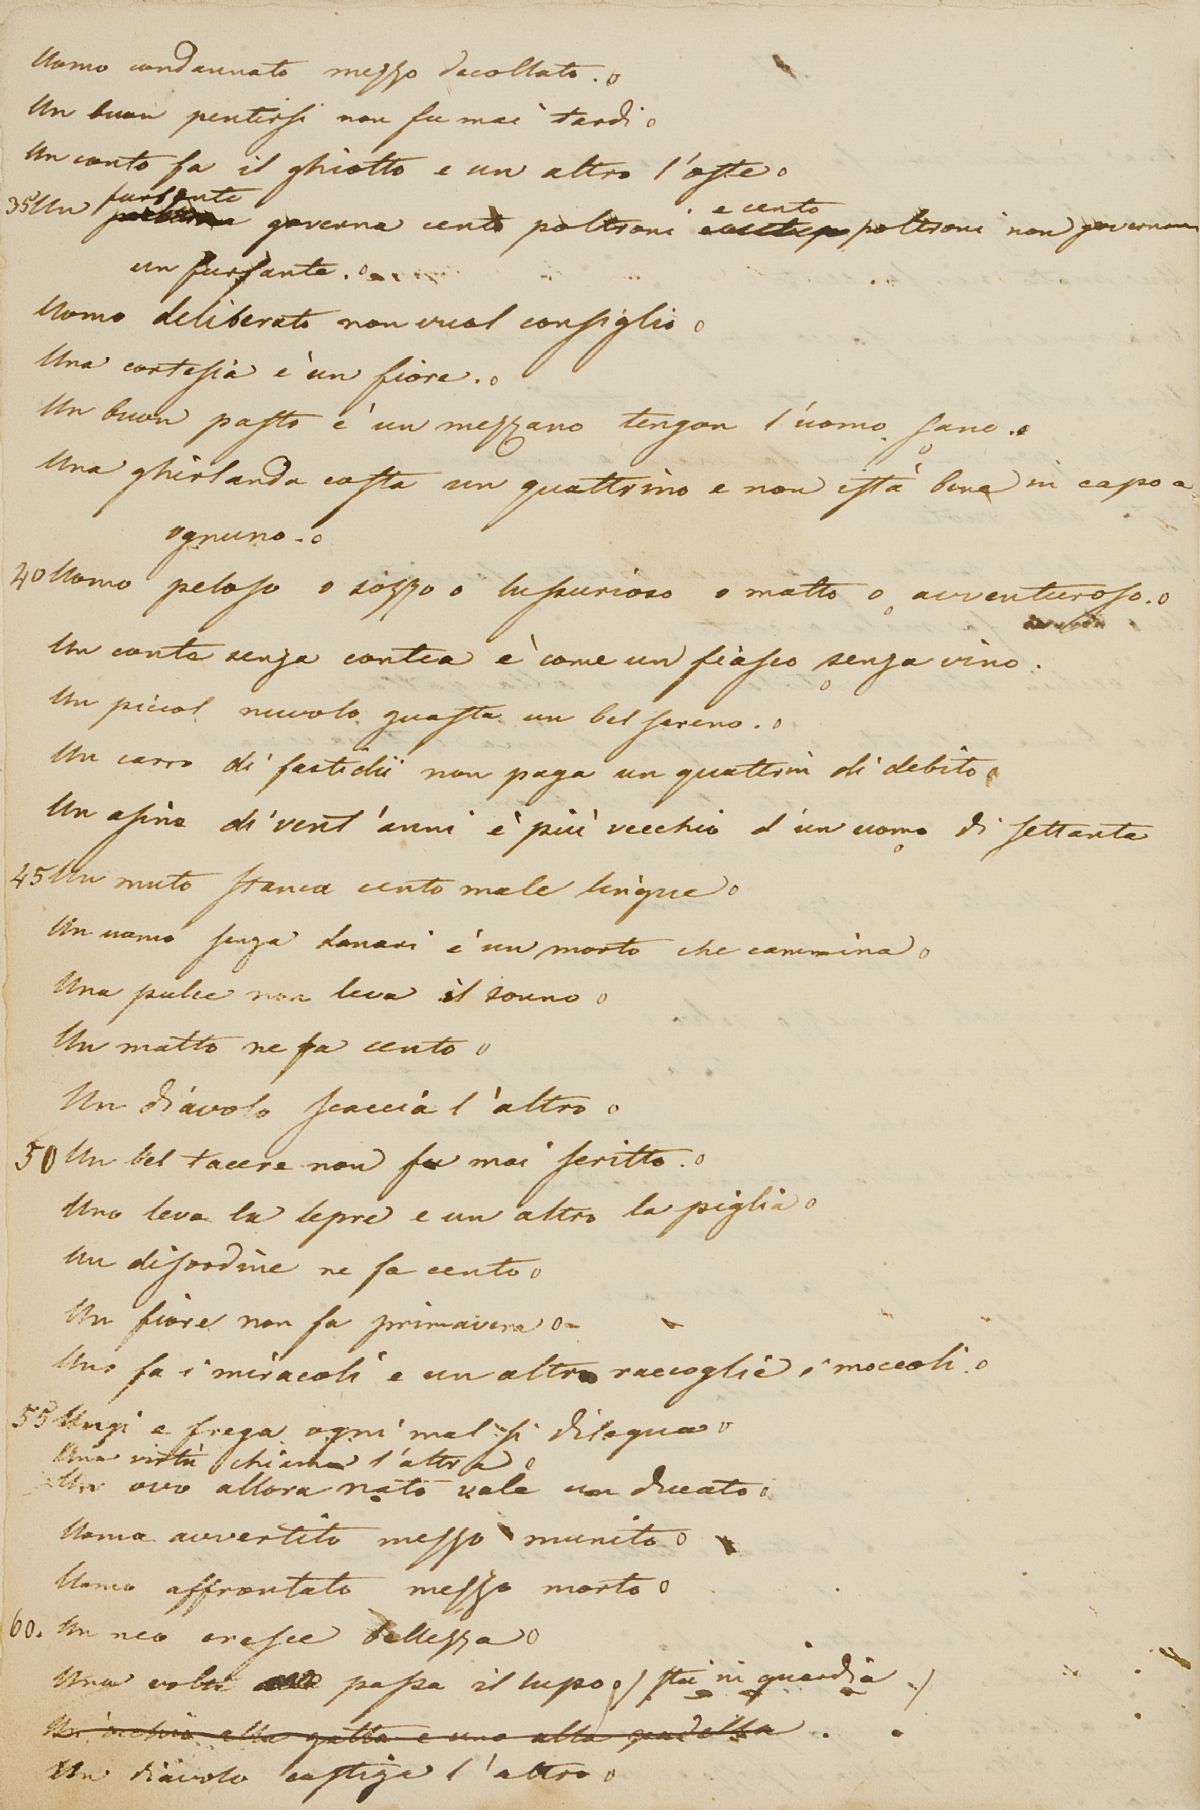 Uomo condannato mezzo decollato.o
Un buon pentirsi non fu mai tardi o
Un conto fa il ghiotto e un altro l'oste o
furfante e cento
35 Un governa cento poltroni poltroni non governano
un furfante.o
Uomo deliberato non vuol consiglio o
Una cortesia è un fiore.o
Un buon pasto e un mezzano tengon l'uomo sano.o
Una ghirlanda costa un quattrino e non istà bene in capo a
ognuno.o
40 Uomo peloso o sozzo o lussurioso o matto o avventuroso.o
Un conte senza contea è come un fiasco senza vino.
Un piccol nuvolo guasta un bel sereno.o
Un carro di fastidii non paga un quattrin di debito o
Un asino di vent'anni è più vecchio d'un uomo di settanta
45 Un muto stanca cento male lingue o
Un uomo senza danari è un morto che cammina o
Una pulce non leva il sonno o
Un matto ne fa cento o
Un diavolo scaccia l'altro o
50 Un bel tacere non fu mai scritto.o
Uno leva la lepre e un altro la piglia o
Un disordine ne fa cento o
Un fiore non fa primavera o
Uno fa i miracoli e un altro raccoglie i moccoli.o
55 Ungi e frega ogni mal si dilegua o
Una virtù chiama l'altra o
Un ovo allora nato vale un ducato o
Uomo avvertito mezzo munito o
Uomo affrontato mezzo morto o
60. Un neo cresce bellezza o
Una volta passa il lupo o/ stai in guardia ./
Un occhio alla gatta e uno alla padella.
Un diavolo castiga l'altro o